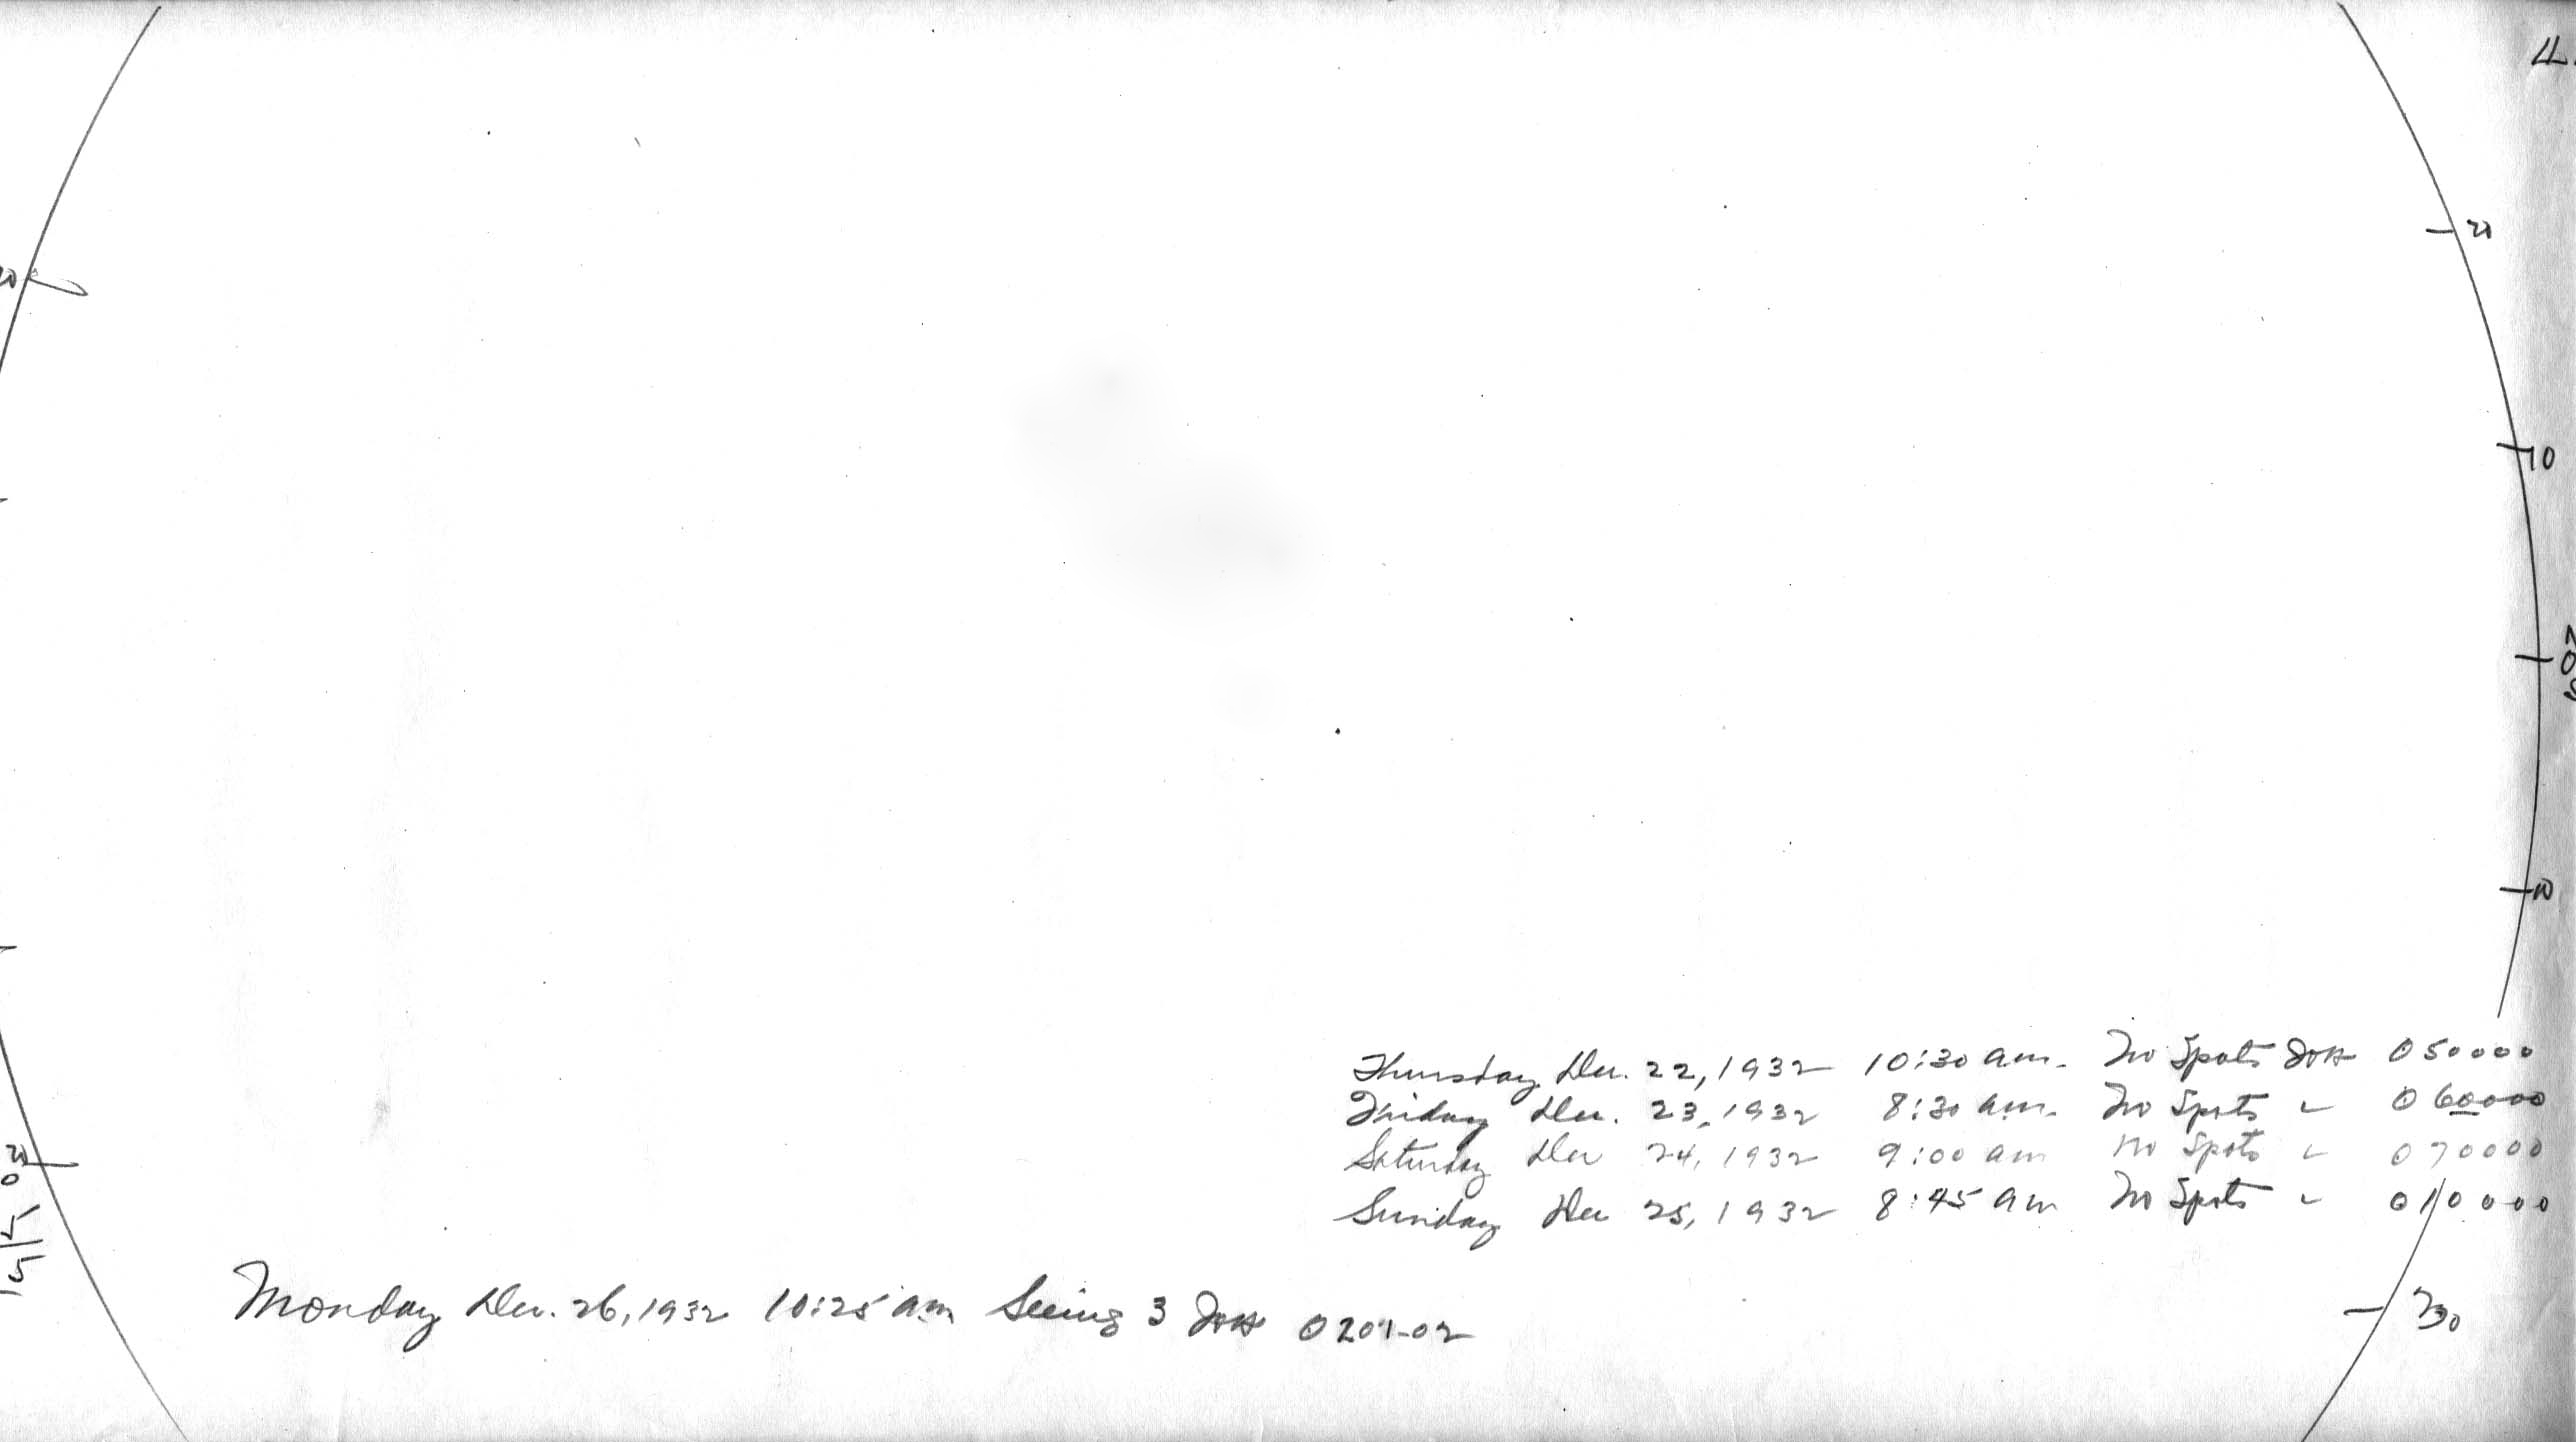 20
20
10
N
0
S
10
Thursday Dec. 22, 1932 10:30 am. No Spots 050000
Friday Dec. 23, 1932 8:30 am. No Spots 060000
Saturday Dec 24, 1932 9:00 am No Spots 070000
Sunday Dec 25, 1932 8:45 am No Spots 010000
20
Monday Dec. 26, 1932 10:25 am Seeing 3 0201-02
30